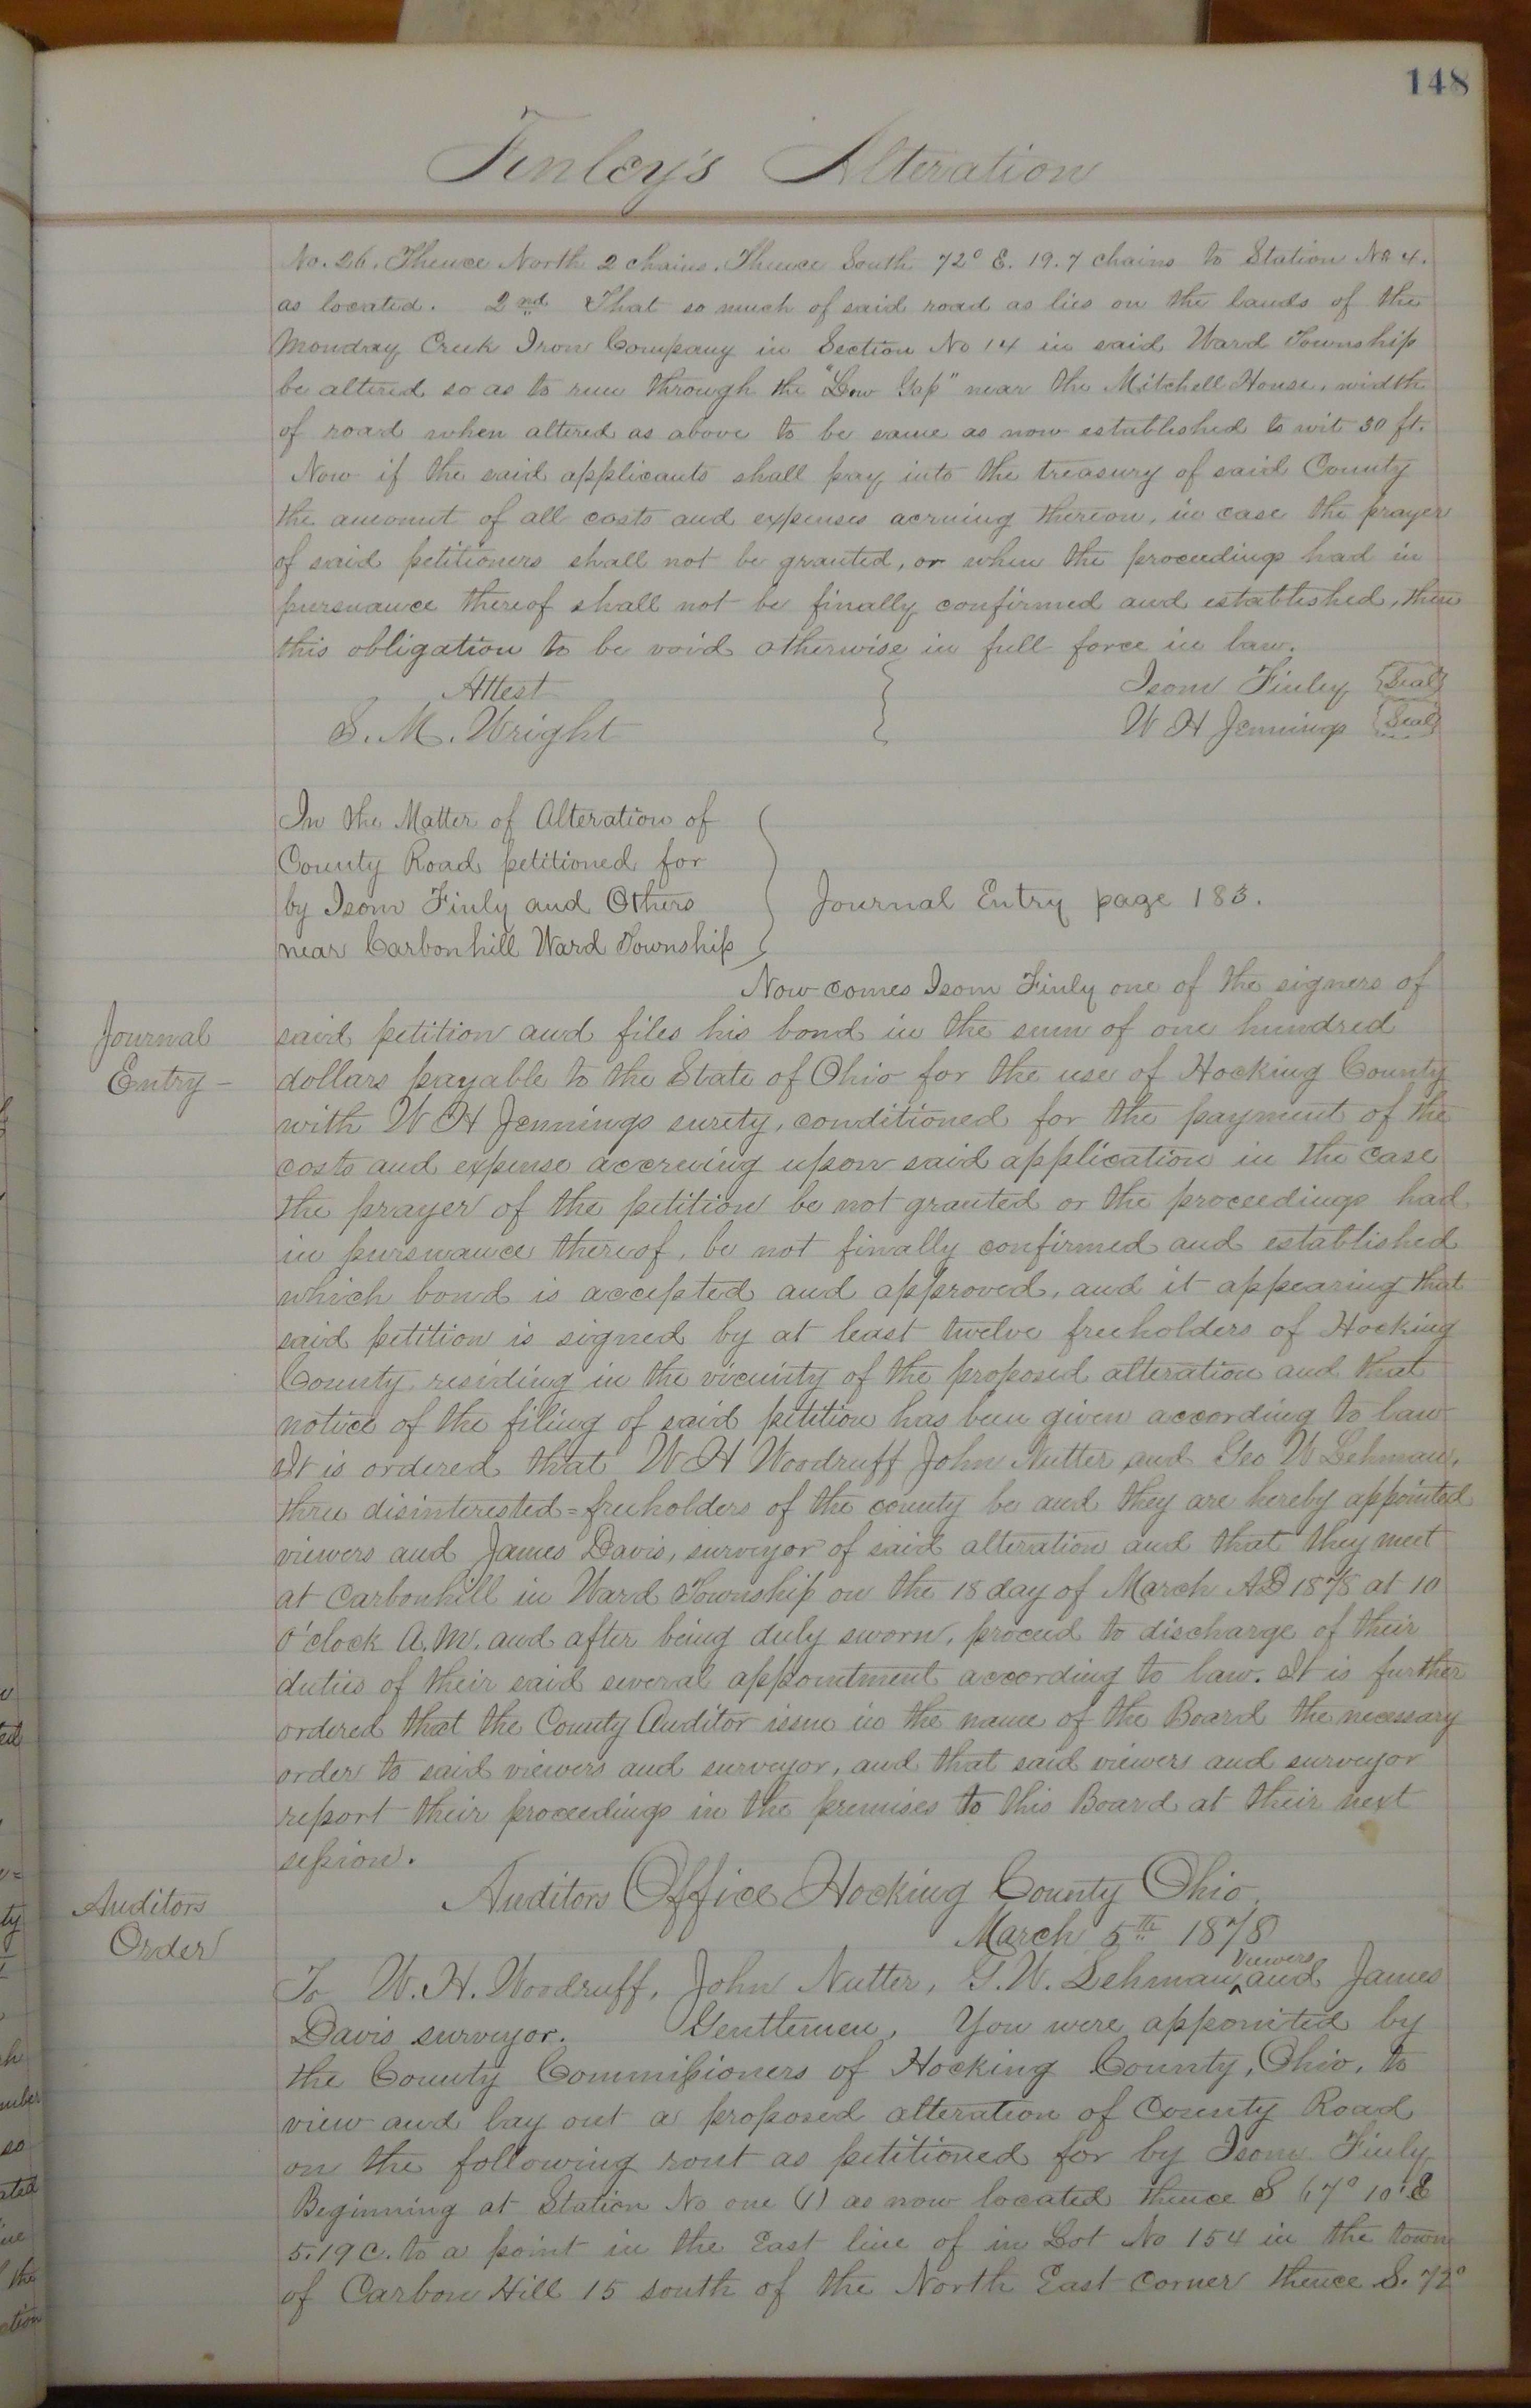 148
Finley's Alteration
No. 26. Thence North 2 chains. Thence South 72° E. 19.7 chains to Station No 4.
as located. 2nd That so much of said road as lies on the lands of the
Monday Creek Iron Company in Section No 14 in said Ward Township
be altered so as to run through the "Low Gap" near the Mitchell House, width
of road when altered as above to be same as now established to wit 30 ft.
Now if the said applicants shall pay into the treasury of said County
the amount of all costs and expenses acruing thereon, in case the prayer
of said petitioners shall not be granted, or when the proceedings had in
pursuance thereof shall not be finally confirmed and established, then
this obligation to be void otherwise in full force in law.
Attest Isom Finley (Seal)
S. M. Wright W H Jennings (Seal)
In the Matter of Alteration of
County Road petitioned for
by Isom Finly and Others
near Carbonhill Ward Township
Journal Entry page 183.
Now comes Isom Finly one of the signers of
Journal
Entry –
said petition and files his bond in the sum of one hundred
dollars payable to the State of Ohio for the use of Hocking County
with W H Jennings surety, conditioned for the payment of the
costs and expense accrueing upon said application in the case
the prayer of the petition be not granted or the proceedings had
in pursuance thereof, be not finally confirmed and established
which bond is accepted and approved, and it appearing that
said petition is signed by at least twelve freeholders of Hocking
County residing in the vicinity of the proposed alteration and that
notice of the filing of said petition has been given according to law
It is ordered that W H Woodruff John Nutter and Geo W Lehman,
three disinterested=freeholders of the county be and they are hereby appointed
viewers and James Davis, surveyor of said alteration and that they meet
at Carbonhill in Ward Township on the 18 day of March AD 1878 at 10
O'clock A.M. and after being duly sworn, proceed to discharge of their
duties of their said several appointment according to law. It is further
ordered that the County Auditor issue in the name of the Board the necessary
order to said viewers and surveyor, and that said viewers and surveyor
report their proceedings in the premises to this Board at their next
session.
Auditors
Order
Auditors Office Hocking County Ohio,
March 5th 1878
To W. H. Woodruff, John Nutter, G. W. Lehman, viewers and James
Davis surveyor. Gentlemen, You were appointed by
the County Commissioners of Hocking County, Ohio, to
view and lay out a proposed alteration of County Road
on the following rout as petitioned for by Isom Finly
Beginning at Station No one (1) as now located thence S 67° 10' E
5.19 C. to a point in the East line of in Lot No 154 in the town
of Carbon Hill 15 south of the North East corner thence S. 72°